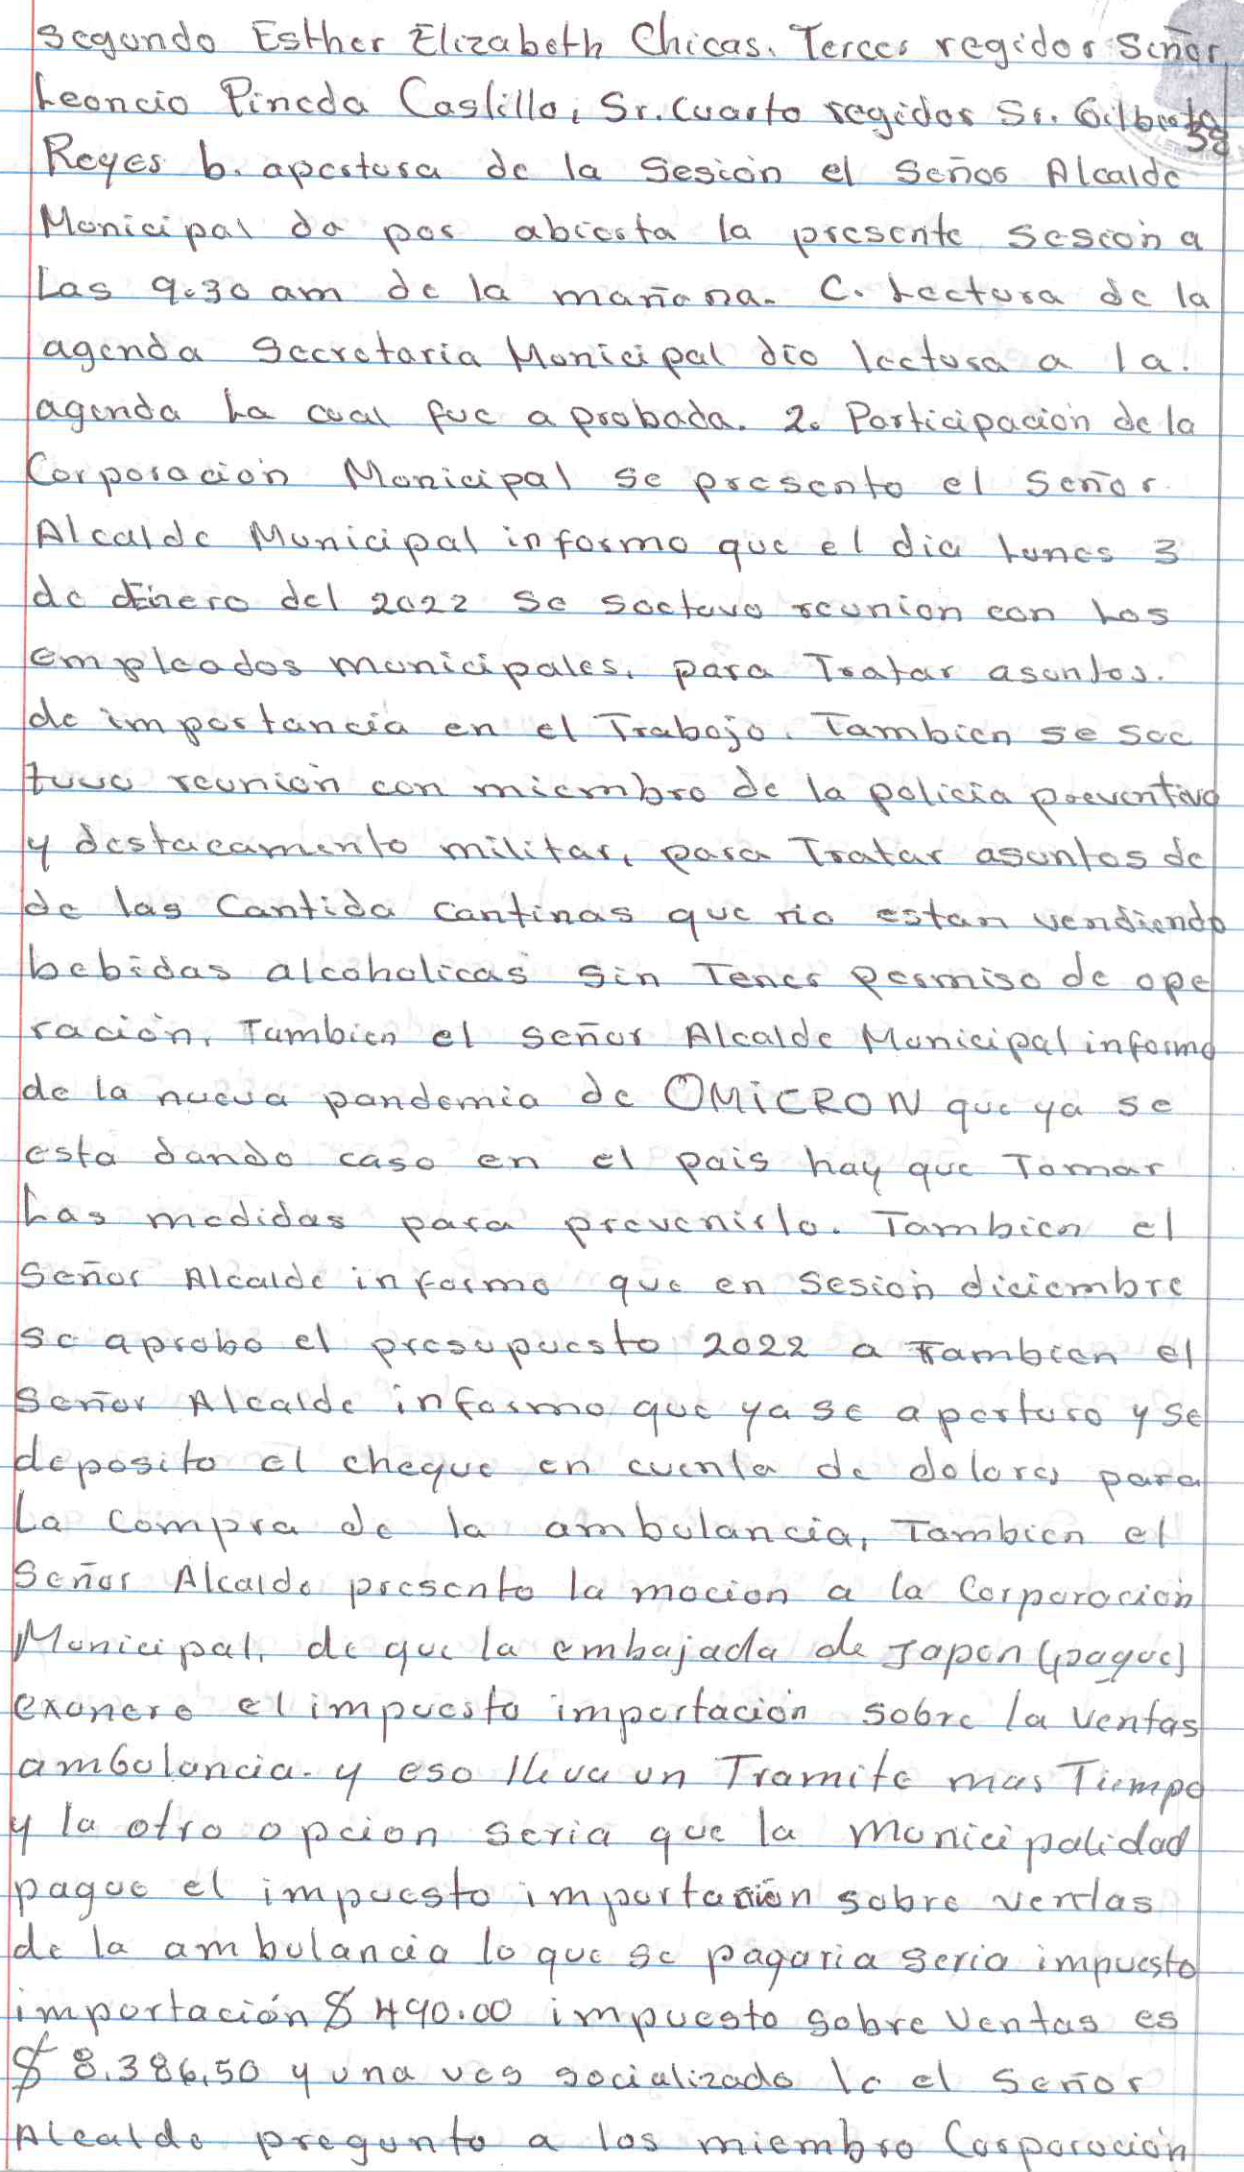 Segundo Esther Elizabeth Chicas. Tercer regidor Señor
Leoncio Pineda Castillo, Sr. Cuarto regidor Sr. Gilberto
38
Reyes b. apertura de la Sesión el Señor Alcalde
Municipal da por abierta la presente sesión a
Las 9:30 am de la mañana. C. Lectura de la
agenda Secretaria Municipal dio lectura a la.
agenda La cual fue aprobada. 2. Participación de la
Corporación Municipal se presento el Señor.
Alcalde Municipal informo que el dia lunes 3
de Enero del 2022 se soctuvo reunion con Los
empleados municipales, para Tratar asuntos.
de importancia en el Trabajo. Tambien se soc
tuvo reunión con miembro de la policia preventiva
y destacamento militar, para Tratar asuntos de
de las Cantida cantinas que no estan vendiendo
bebidas alcoholicas sin Tener permiso de ope
ración, Tambien el Señor Alcalde Municipal informo
de la nueva pandemia de OMiCRON que ya se
esta dando caso en el pais hay que Tomar
Las medidas para prevenirlo. Tambien el
Señor Alcalde informo que en sesión diciembre
se aprobo el presupuesto 2022 a Tambien el
Señor Alcalde informo que ya se aperturo y se
deposito el cheque en cuenta de dolores para
La compra de la ambulancia, Tambien el
Señor Alcalde presento la mocion a la Corporación
Municipal, de que la embajada de Japon (pague)
exonere el impuesto importación sobre la ventas
ambulancia. y eso lleva un Tramite mas Tiempo
y la otro opcion seria que la municipalidad
pague el impuesto importación sobre ventas
de la ambulancia lo que se pagaria seria impuesto
importación $ 490.00 impuesto sobre Ventas es
$ 8.386,50 y una ves socializado lo el Señor
Alcalde pregunto a los miembro Corporación